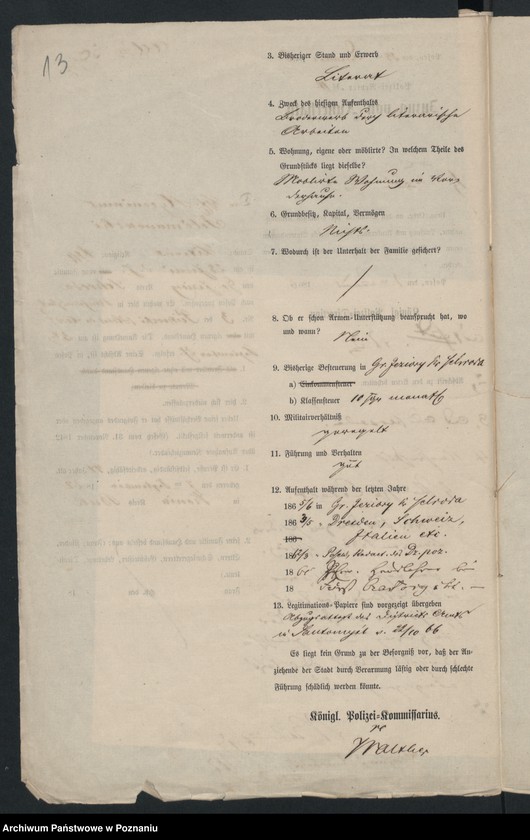 13
3. Bisheriger Stand und Erwerb
Literat
4. Zweck des hiesigen Aufenthalts
Broderwerb durch literarische
Arbeiten
5. Wohnung, eigene oder möblirte? In welchem Theile des
Grundstücks liegt dieselbe?
Möblirte Wohnung im Vor-
derhause.
6. Grundbesitz, Kapital, Vermögen
Nichts.
7. Wodurch ist der Unterhalt der Familie gesichert?
/
8. Ob er schon Armen-Unterstützung beansprucht hat, wo
und wann?
Nein
9. Bisherige Besteuerung in Gr. Jeziory Kr. Schroda
a) Einkommensteuer
b) Klassensteuer 10 Sgr monatl
10. Militairverhältniß
geregelt
11. Führung und Verhalten
gut
12. Aufenthalt während der letzten Jahre
186 5/6 in Gr. Jeziory Kr. Schroda
186 3/5 " Dresden, Schweiz,
186 Italien etc.
186 Posen, Redact. des Dz. poz.
18 Hauslehrer bei
18
13. Legitimations-Papiere sind vorgezeigt übergeben
Abzugsattest des Districts Amts
in Santomysl v. 2/10 66
Es liegt kein Grund zu der Besorgniß vor, daß der An-
ziehende der Stadt durch Verarmung lästig oder durch schlechte
Führung schädlich werden könnte.
Königl. Polizei-Kommissarius.
Walther
Archiwum Państwowe w Poznaniu